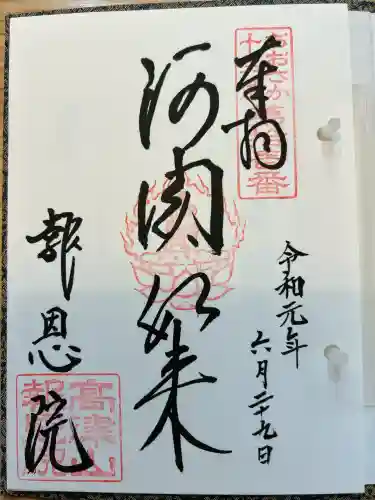 奉拝
阿閦如来
令和元年
六月二十九日
報恩院
おおさか
高津山
報恩院